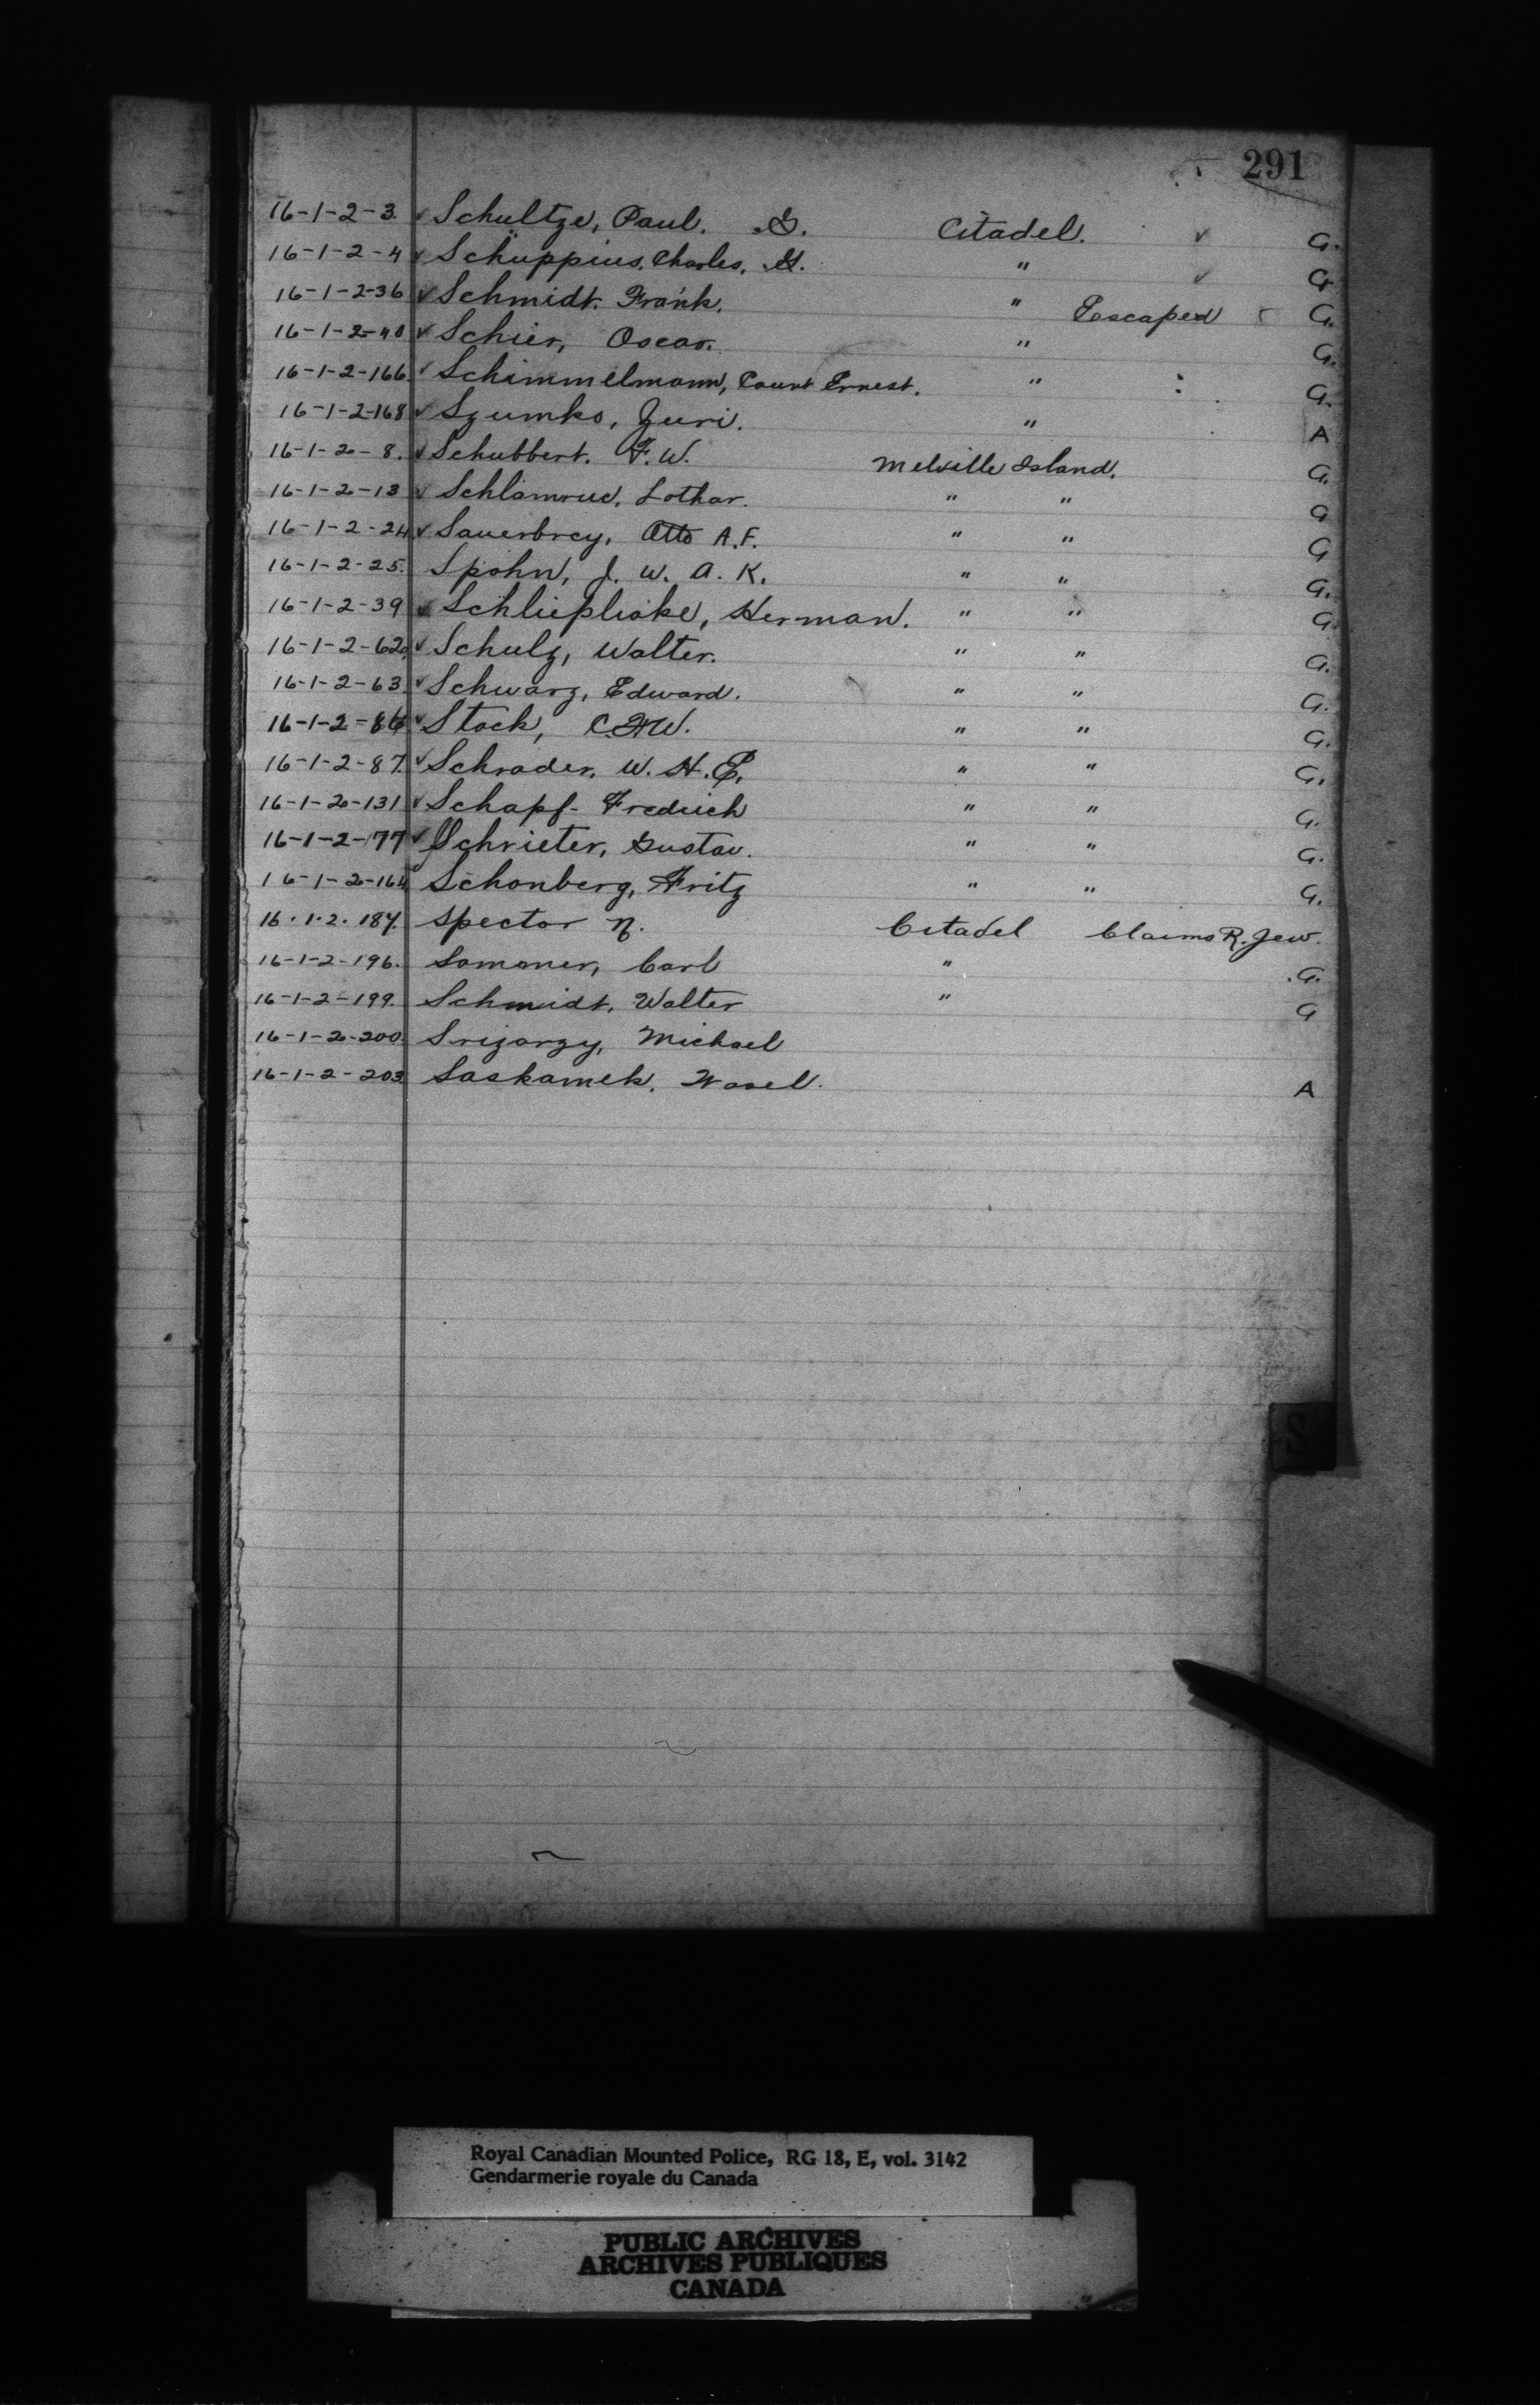 291
16-1-2-3. ✓ Schultze, Paul. G. Citadel. ✓ G.
16-1-2-4 ✓ Schuppius, Charles, H. " ✓ G
16-1-2-36 ✓ Schmidt. Frank. " Escaped G.
16-1-2-40 ✓ Schier, Oscar. " G.
16-1-2-166. ✓ Schimmelmann, Count Ernest. " G.
16-1-2-168 ✓ Szumko, Juri. " A
16-1-2-8. ✓ Schubbert. F.W. Melville Island. G.
16-1-2-13 ✓ Lothar. " " G
16-1-2-24 ✓ Sauerbrey, Otto A.F. " " G
16-1-2-25. Spohn, J. W. A. K. " " G.
16-1-2-39 ✓ Schliephake, Herman. " " G.
16-1-2-62 ✓ Schulz, Walter. " " G.
16-1-2-63. ✓ Schwarz, Edward. " " G.
16-1-2-86 ✓ Stock, C.H.W. " " G.
16-1-2-87. ✓ Schrader, W. H. E. " " G.
16-1-2-131 ✓ Schapf- Fredrich " " G.
16-1-2-177 ✓ Schrieter, Gustav. " " G.
16-1-2-164 Schonberg, Fritz " " G.
16.1.2.187. Spector N. Citadel Claims R. Jew.
16-1-2-196. Somoner, Carl " G.
16-1-2-199. Schmidt, Walter " G
16-1-2-200. Michael
16-1-2-203 Saskamek, Wasel. A
S
Royal Canadian Mounted Police, RG 18, E, vol. 3142
Gendarmerie royale du Canada
PUBLIC ARCHIVES
ARCHIVES PUBLIQUES
CANADA